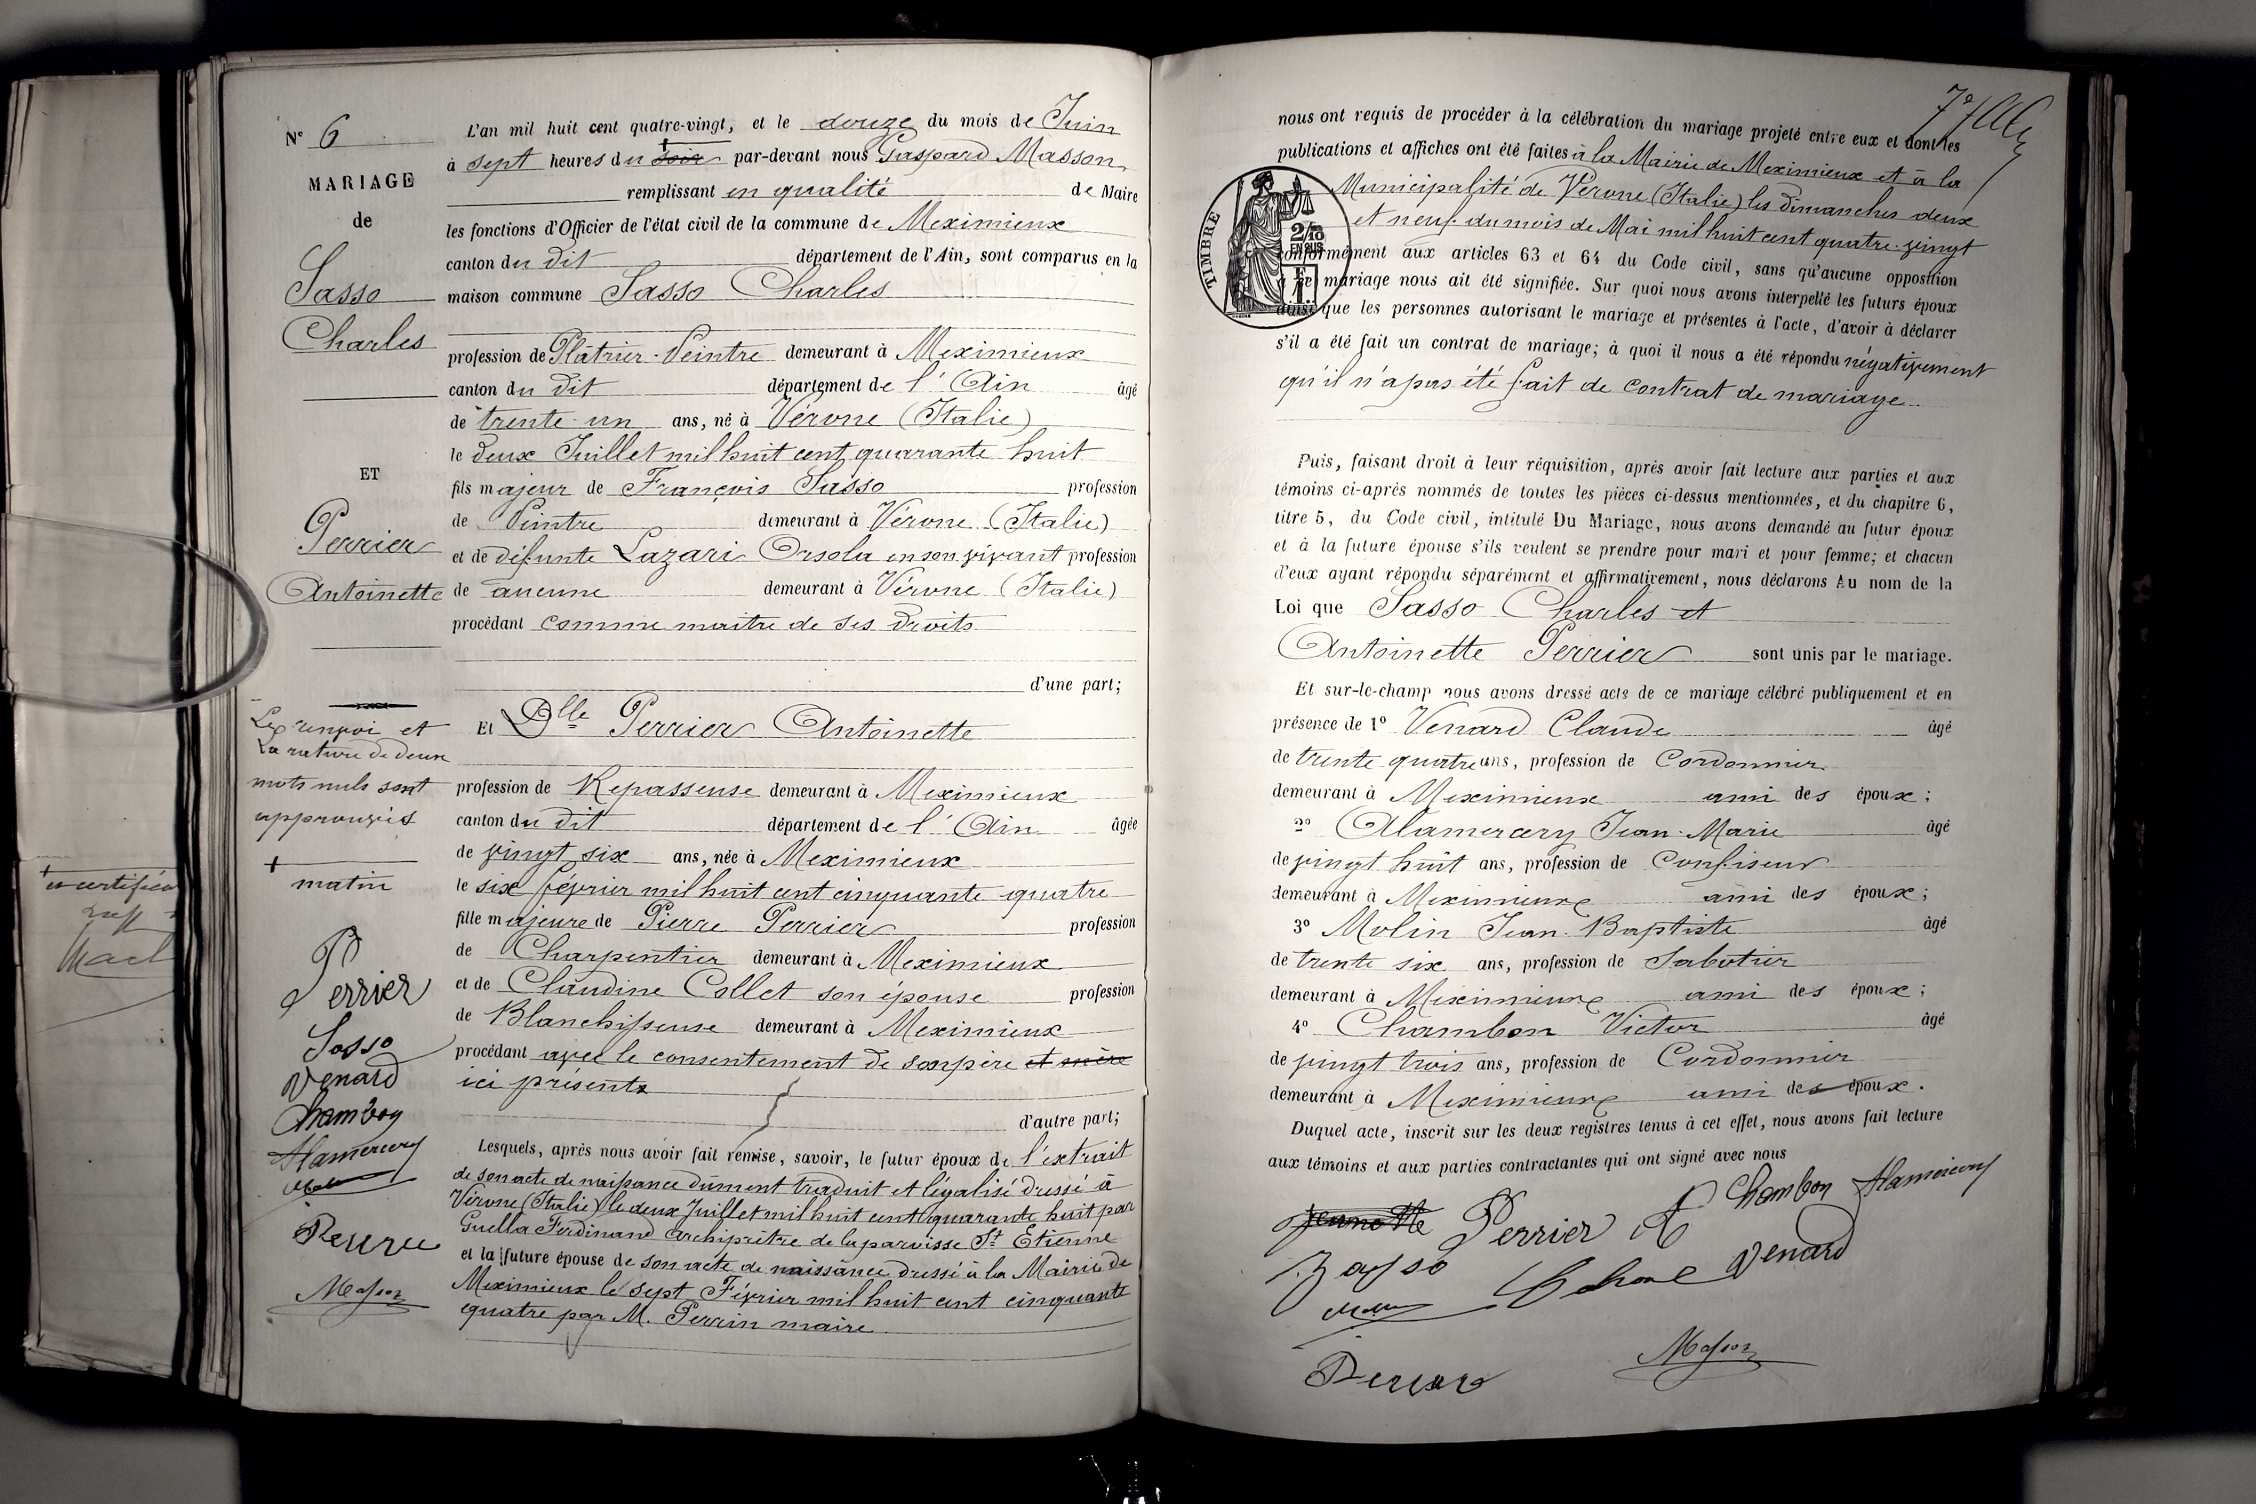 N° 6
MARIAGE
de
Sasso
Charles
ET
Perrier
Antoinette
Le renvoi et
La rature de deux
mots nuls sont
approuvés
+
matin
Perrier
Sasso
Venard
Chambon
Alamercery
Masson
L'an mil huit cent quatre-vingt, et le douze du mois de Juin
à sept heures du soir par-devant nous Gaspard Masson
remplissant en qualité de Maire
les fonctions d'Officier de l'état civil de la commune de Meximieux
canton du dit département de l'Ain, sont comparus en la
maison commune Sasso Charles
profession de Plâtrier-Peintre demeurant à Meximieux
canton du dit département de l'Ain âgé
de trente un ans, né à Vérone (Italie)
le deux Juillet mil huit cent quarante huit
fils majeur de François Sasso profession
de Peintre demeurant à Vérone (Italie)
et de défunte Lazari Orsola en son vivant profession
de aucune demeurant à Vérone (Italie)
procédant comme maitre de ses droits
d'une part;
Et Dlle Perrier Antoinette
profession de Repasseuse demeurant à Meximieux
canton du dit département de l'Ain âgée
de vingt six ans, née à Meximieux
le six février mil huit cent cinquante quatre
fille majeure de Pierre Perrier profession
de Charpentier demeurant à Meximieux
et de Claudine Collet son épouse profession
de Blanchisseuse demeurant à Meximieux
procédant avec le consentement de son père et mère
ici présents
d'autre part;
Lesquels, après nous avoir fait remise, savoir, le futur époux de l'extrait
de son acte de naissance dûment traduit et légalisé dressé à
Vérone (Italie) le deux Juillet mil huit cent quarante huit par
Guella Ferdinand archiprêtre de la paroisse St Etienne
et la future épouse de son acte de naissance dressé à la Mairie de
Meximieux le sept Février mil huit cent cinquante
quatre par M. Perrin maire
nous ont requis de procéder à la célébration du mariage projeté entre eux et dont les
publications et affiches ont été faites à la Mairie de Meximieux et à la
Municipalité de Vérone (Italie) les dimanches deux
et neuf du mois de Mai mil huit cent quatre-vingt
TIMBRE
2/10
EN SUS
conformément aux articles 63 et 64 du Code civil, sans qu'aucune opposition
à ce mariage nous ait été signifiée. Sur quoi nous avons interpellé les futurs époux
ainsi que les personnes autorisant le mariage et présentes à l'acte, d'avoir à déclarer
s'il a été fait un contrat de mariage; à quoi il nous a été répondu négativement
qu'il n'a pas été fait de contrat de mariage.
Puis, faisant droit à leur réquisition, après avoir fait lecture aux parties et aux
témoins ci-après nommés de toutes les pièces ci-dessus mentionnées, et du chapitre 6,
titre 5, du Code civil, intitulé Du Mariage, nous avons demandé au futur époux
et à la future épouse s'ils veulent se prendre pour mari et pour femme; et chacun
d'eux ayant répondu séparément et affirmativement, nous déclarons Au nom de la
Loi que Sasso Charles et
Antoinette Perrier sont unis par le mariage.
Et sur-le-champ nous avons dressé acte de ce mariage célébré publiquement et en
présence de 1° Venard Claude âgé
de trente quatre ans, profession de Cordonnier
demeurant à Meximieux ami des époux;
2° Alamercery Jean-Marie âgé
de vingt huit ans, profession de Confiseur
demeurant à Meximieux ami des époux;
3° Molin Jean-Baptiste âgé
de trente six ans, profession de Sabotier
demeurant à Meximieux ami des époux;
4° Chambon Victor âgé
de vingt trois ans, profession de Cordonnier
demeurant à Meximieux ami des époux.
Duquel acte, inscrit sur les deux registres tenus à cet effet, nous avons fait lecture
aux témoins et aux parties contractantes qui ont signé avec nous
Chambon Alamercery
Perrier A
Venard
Masson